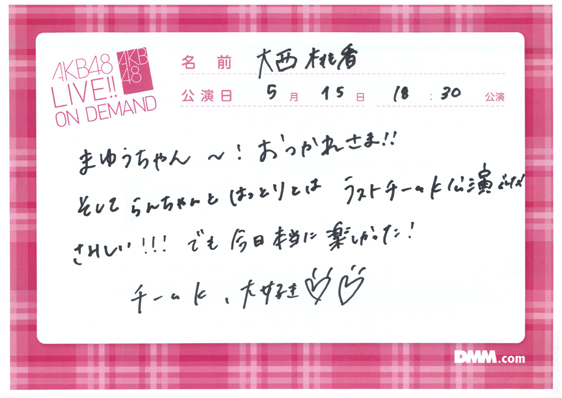 AKB48
LIVE!!
ON DEMAND
AKB
48
名前 大西桃香
公演日 5月15日 18:30 公演
まゆうちゃん〜!おつかれさま!!
そしてらんちゃんとはっとりとは ラストチームK公演
さみしい!!! でも今日本当に楽しかった!
チームK、大好き♡♡
DMM.com